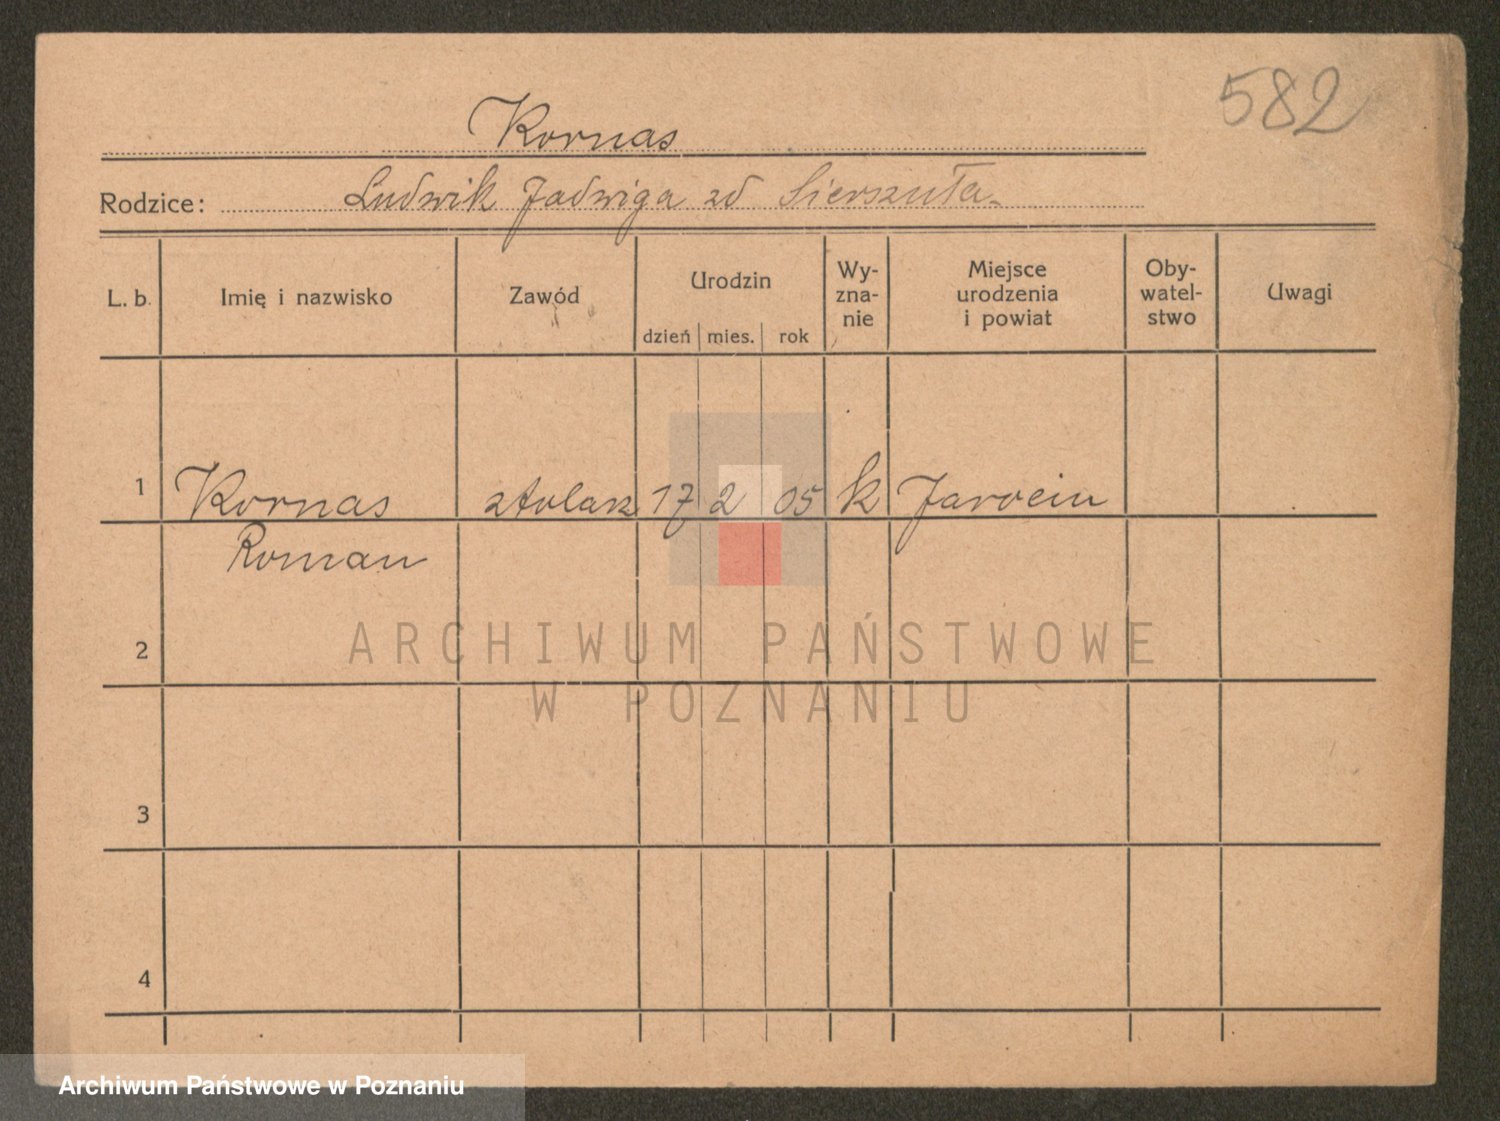 582
Kornas
Rodzice: Ludwik Jadwiga zd Sierszuła
L. b. Imię i nazwisko Zawód Urodzin dzień mies. rok Wy-zna-nie Miejsce urodzenia i powiat Oby-watel-stwo Uwagi
1 Kornas stolarz 17 2 05 k Jarocin
Roman
2
ARCHIWUM PAŃSTWOWE
W POZNANIU
3
4
Archiwum Państwowe w Poznaniu